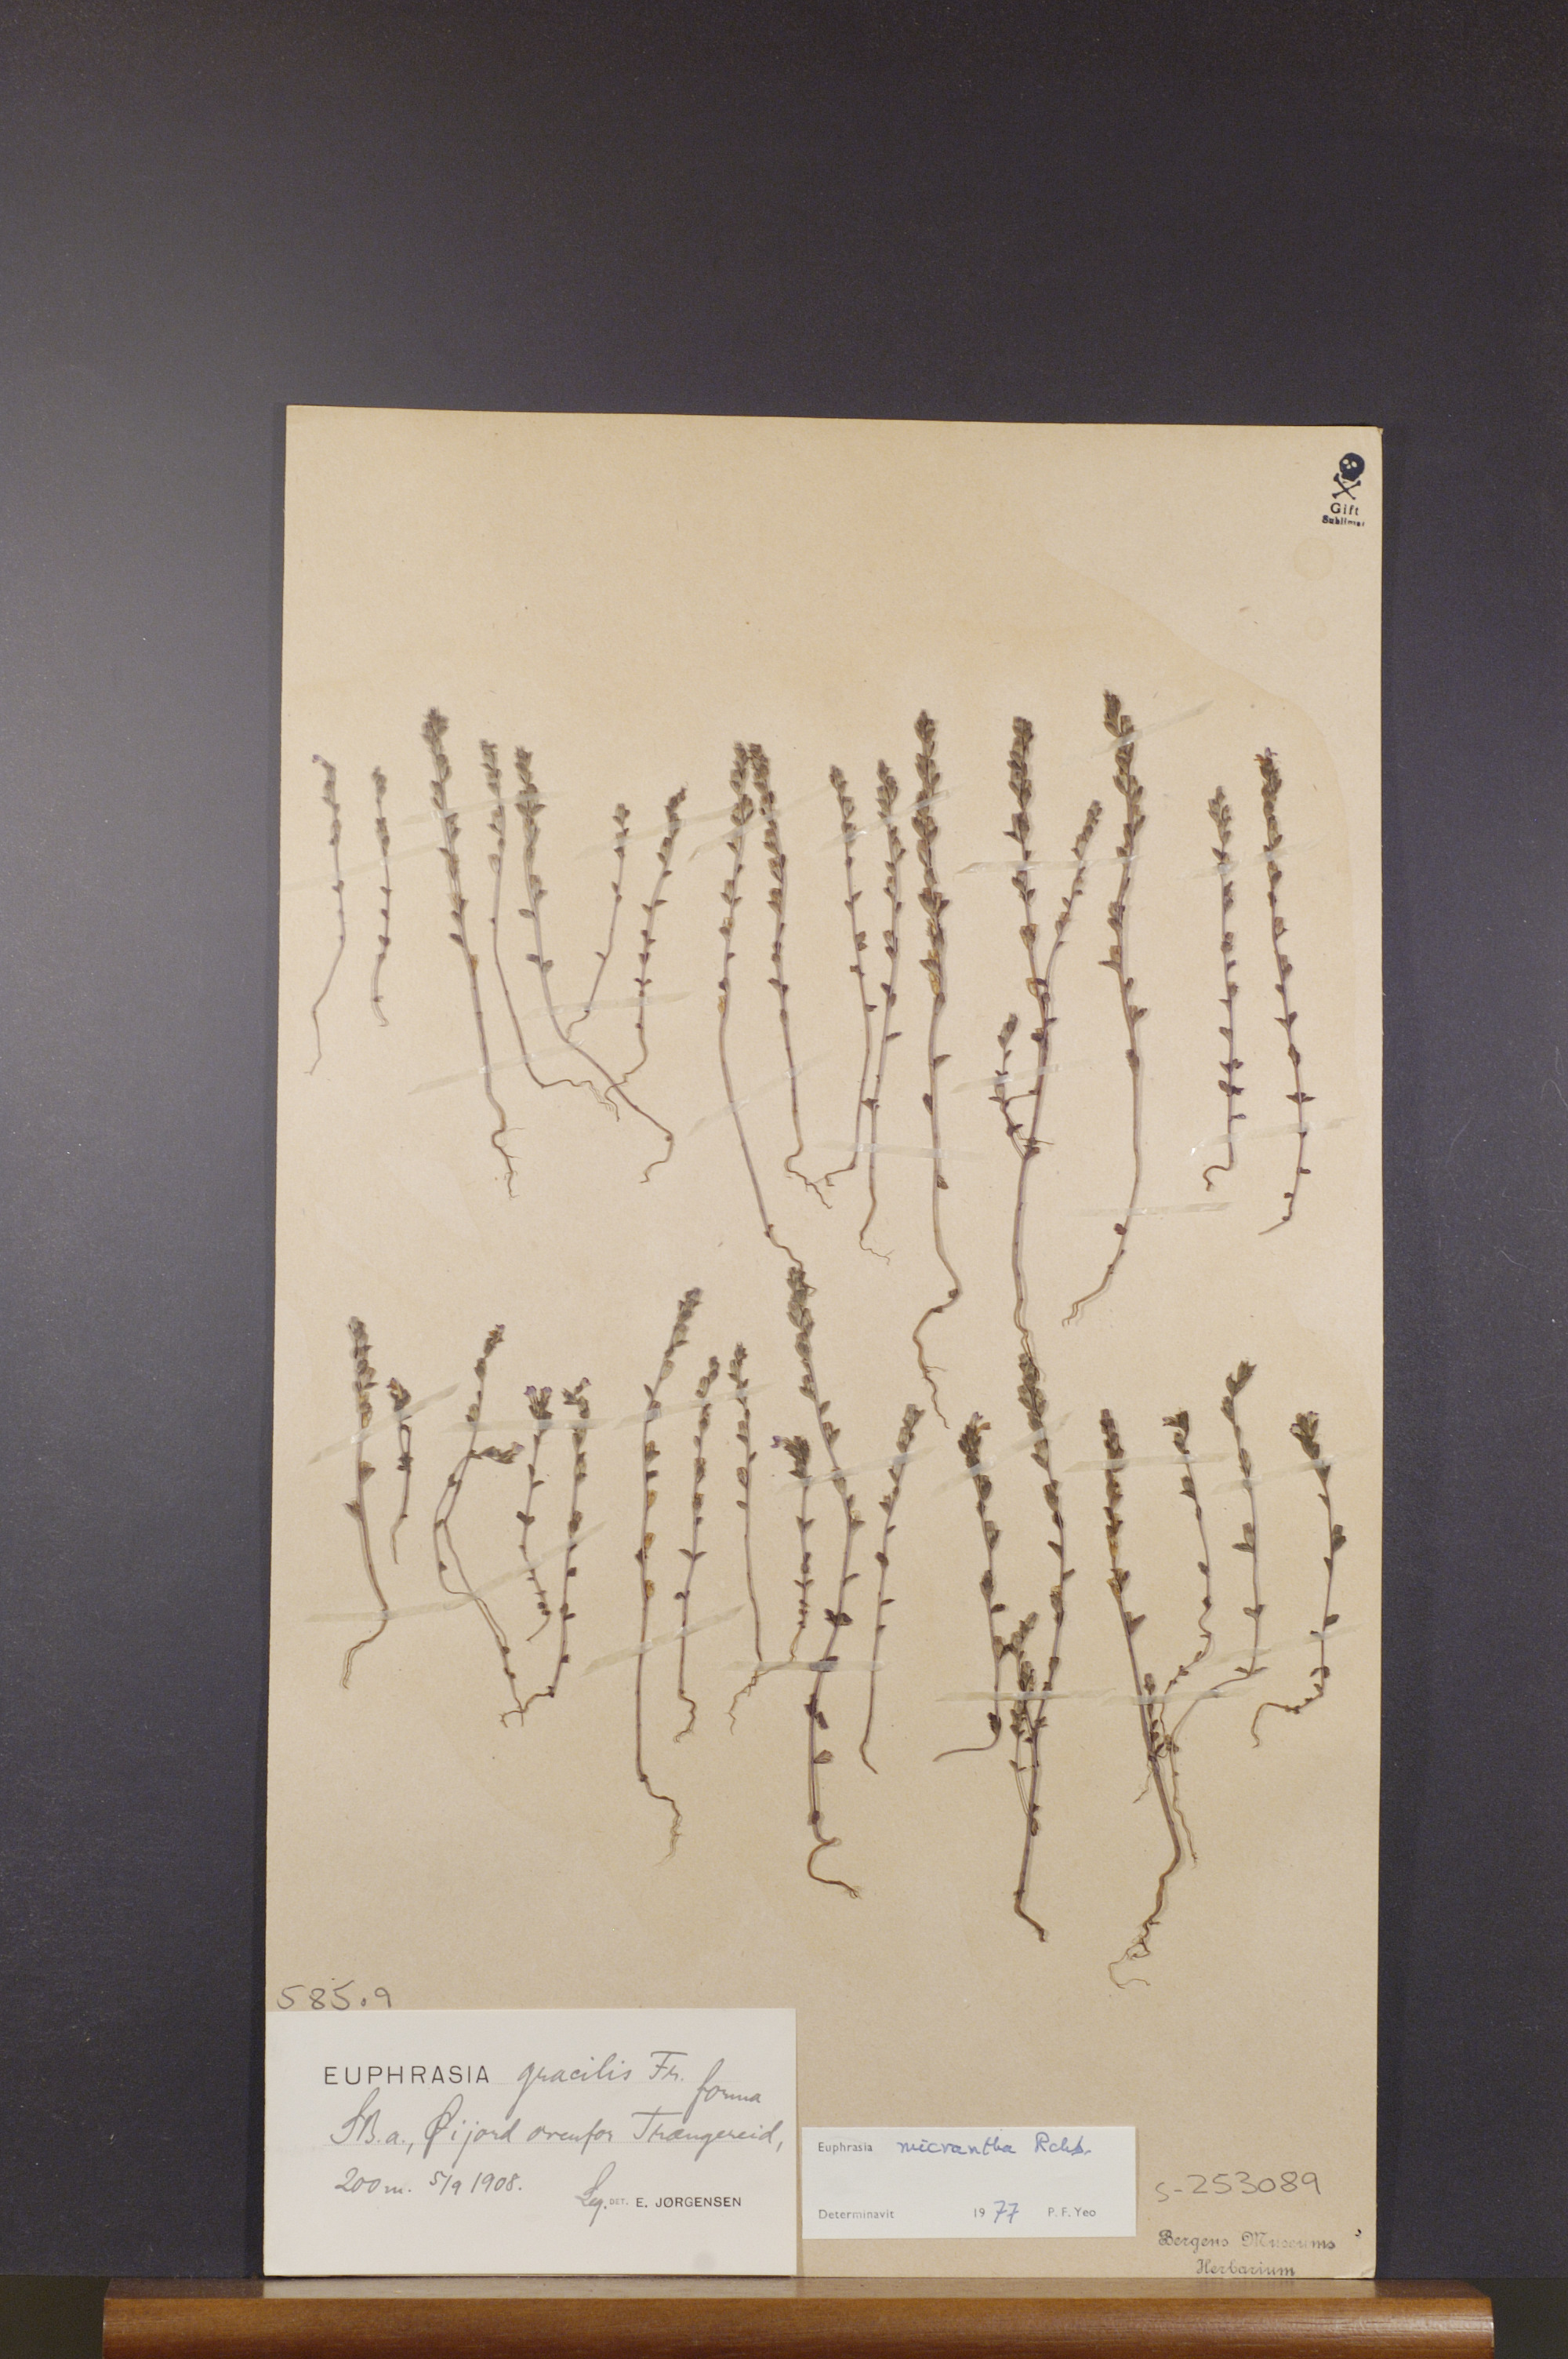 Gift
Sublimat
585.9
EUPHRASIA gracilis Fr. forma
SB.a., Øijord ovenfor Trængereid,
200 m. 5/9 1908.
Leg. DET. E. JØRGENSEN
Euphrasia micrantha Rchb.
Determinavit 1977 P. F. Yeo
S-253089
Bergens Museums
Herbarium